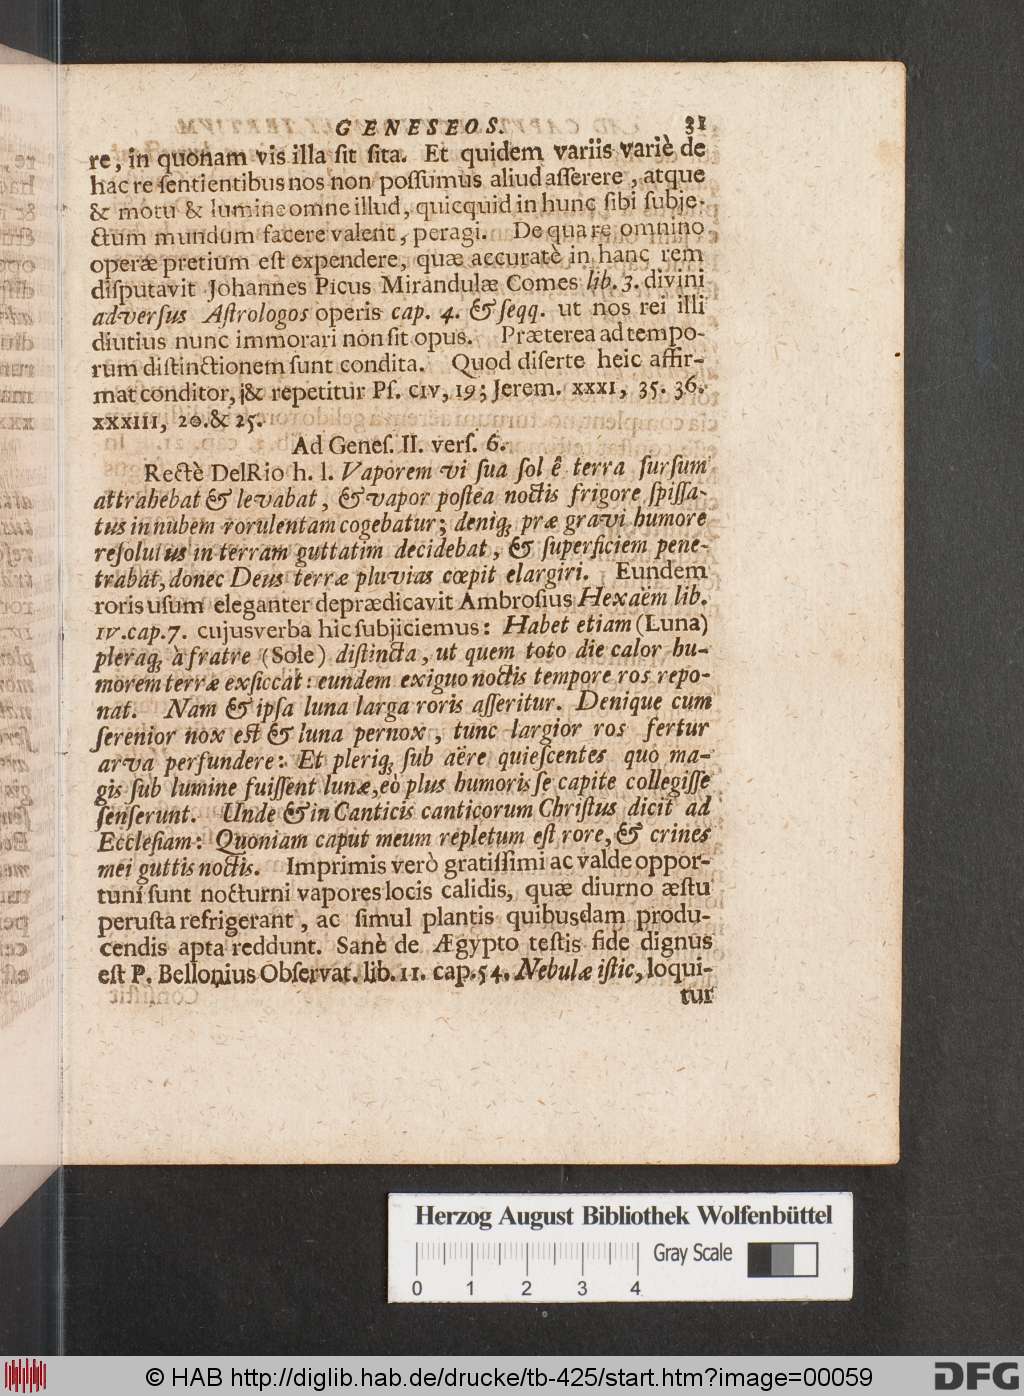 GENESEOS. 31
re, in quonam vis illa ſit ſita. Et quidem variis variè de
hac re ſentientibus nos non poſſumus aliud aſſerere, atque
& motu & lumine omne illud, quicquid in hunc ſibi ſubje-
ctum mundum facere valent, peragi. De qua re omnino
operæ pretium eſt expendere, quæ accuratè in hanc rem
diſputavit Johannes Picus Mirandulæ Comes lib. 3. divini
adverſus Aſtrologos operis cap. 4. & ſeqq. ut nos rei illi
diutius nunc immorari non ſit opus. Præterea ad tempo-
rum diſtinctionem ſunt condita. Quod diſerte heic affir-
mat conditor, & repetitur Pſ. CIV, 19; Jerem. XXXI, 35. 36.
XXXIII, 20. & 25.
Ad Geneſ. II. verſ. 6.
Rectè DelRio h. l. Vaporem vi ſua ſol ê terra ſurſum
attrahebat & levabat, & vapor poſtea noctis frigore ſpiſſa-
tus in nubem rorulentam cogebatur; deniq; præ gravi humore
reſolutus in terram guttatim decidebat, & ſuperficiem pene-
trabat, donec Deus terræ pluvias cœpit elargiri. Eundem
roris uſum eleganter deprædicavit Ambroſius Hexaëm lib.
IV. cap. 7. cujus verba hic ſubjiciemus: Habet etiam (Luna)
pleraq; à fratre (Sole) diſtincta, ut quem toto die calor hu-
morem terræ exſiccat: eundem exiguo noctis tempore ros repo-
nat. Nam & ipſa luna larga roris aſſeritur. Denique cum
ſerenior nox eſt & luna pernox, tunc largior ros fertur
arva perfundere: Et pleriq; ſub aëre quieſcentes quo ma-
gis ſub lumine fuiſſent lunæ, eò plus humoris ſe capite collegiſſe
ſenſerunt. Unde & in Canticis canticorum Chriſtus dicit ad
Eccleſiam: Quoniam caput meum repletum eſt rore, & crines
mei guttis noctis. Imprimis verò gratiſſimi ac valde oppor-
tuni ſunt nocturni vapores locis calidis, quæ diurno æſtu
peruſta refrigerant, ac ſimul plantis quibusdam produ-
cendis apta reddunt. Sanè de Ægypto teſtis fide dignus
eſt P. Bellonius Obſervat. lib. II. cap. 54. Nebulæ iſtic, loqui-
tur
Herzog August Bibliothek Wolfenbüttel
Gray Scale
0 1 2 3 4
© HAB http://diglib.hab.de/drucke/tb-425/start.htm?image=00059
DFG